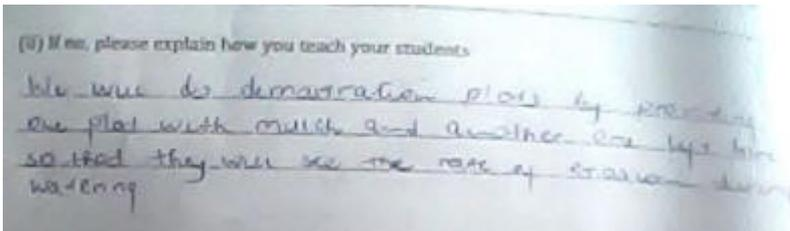 (ii) If no, please explain how you teach your students
We will do demonstration plots by providing
one plot with mulch and another one
so that they will see the rate of erosion during
watering